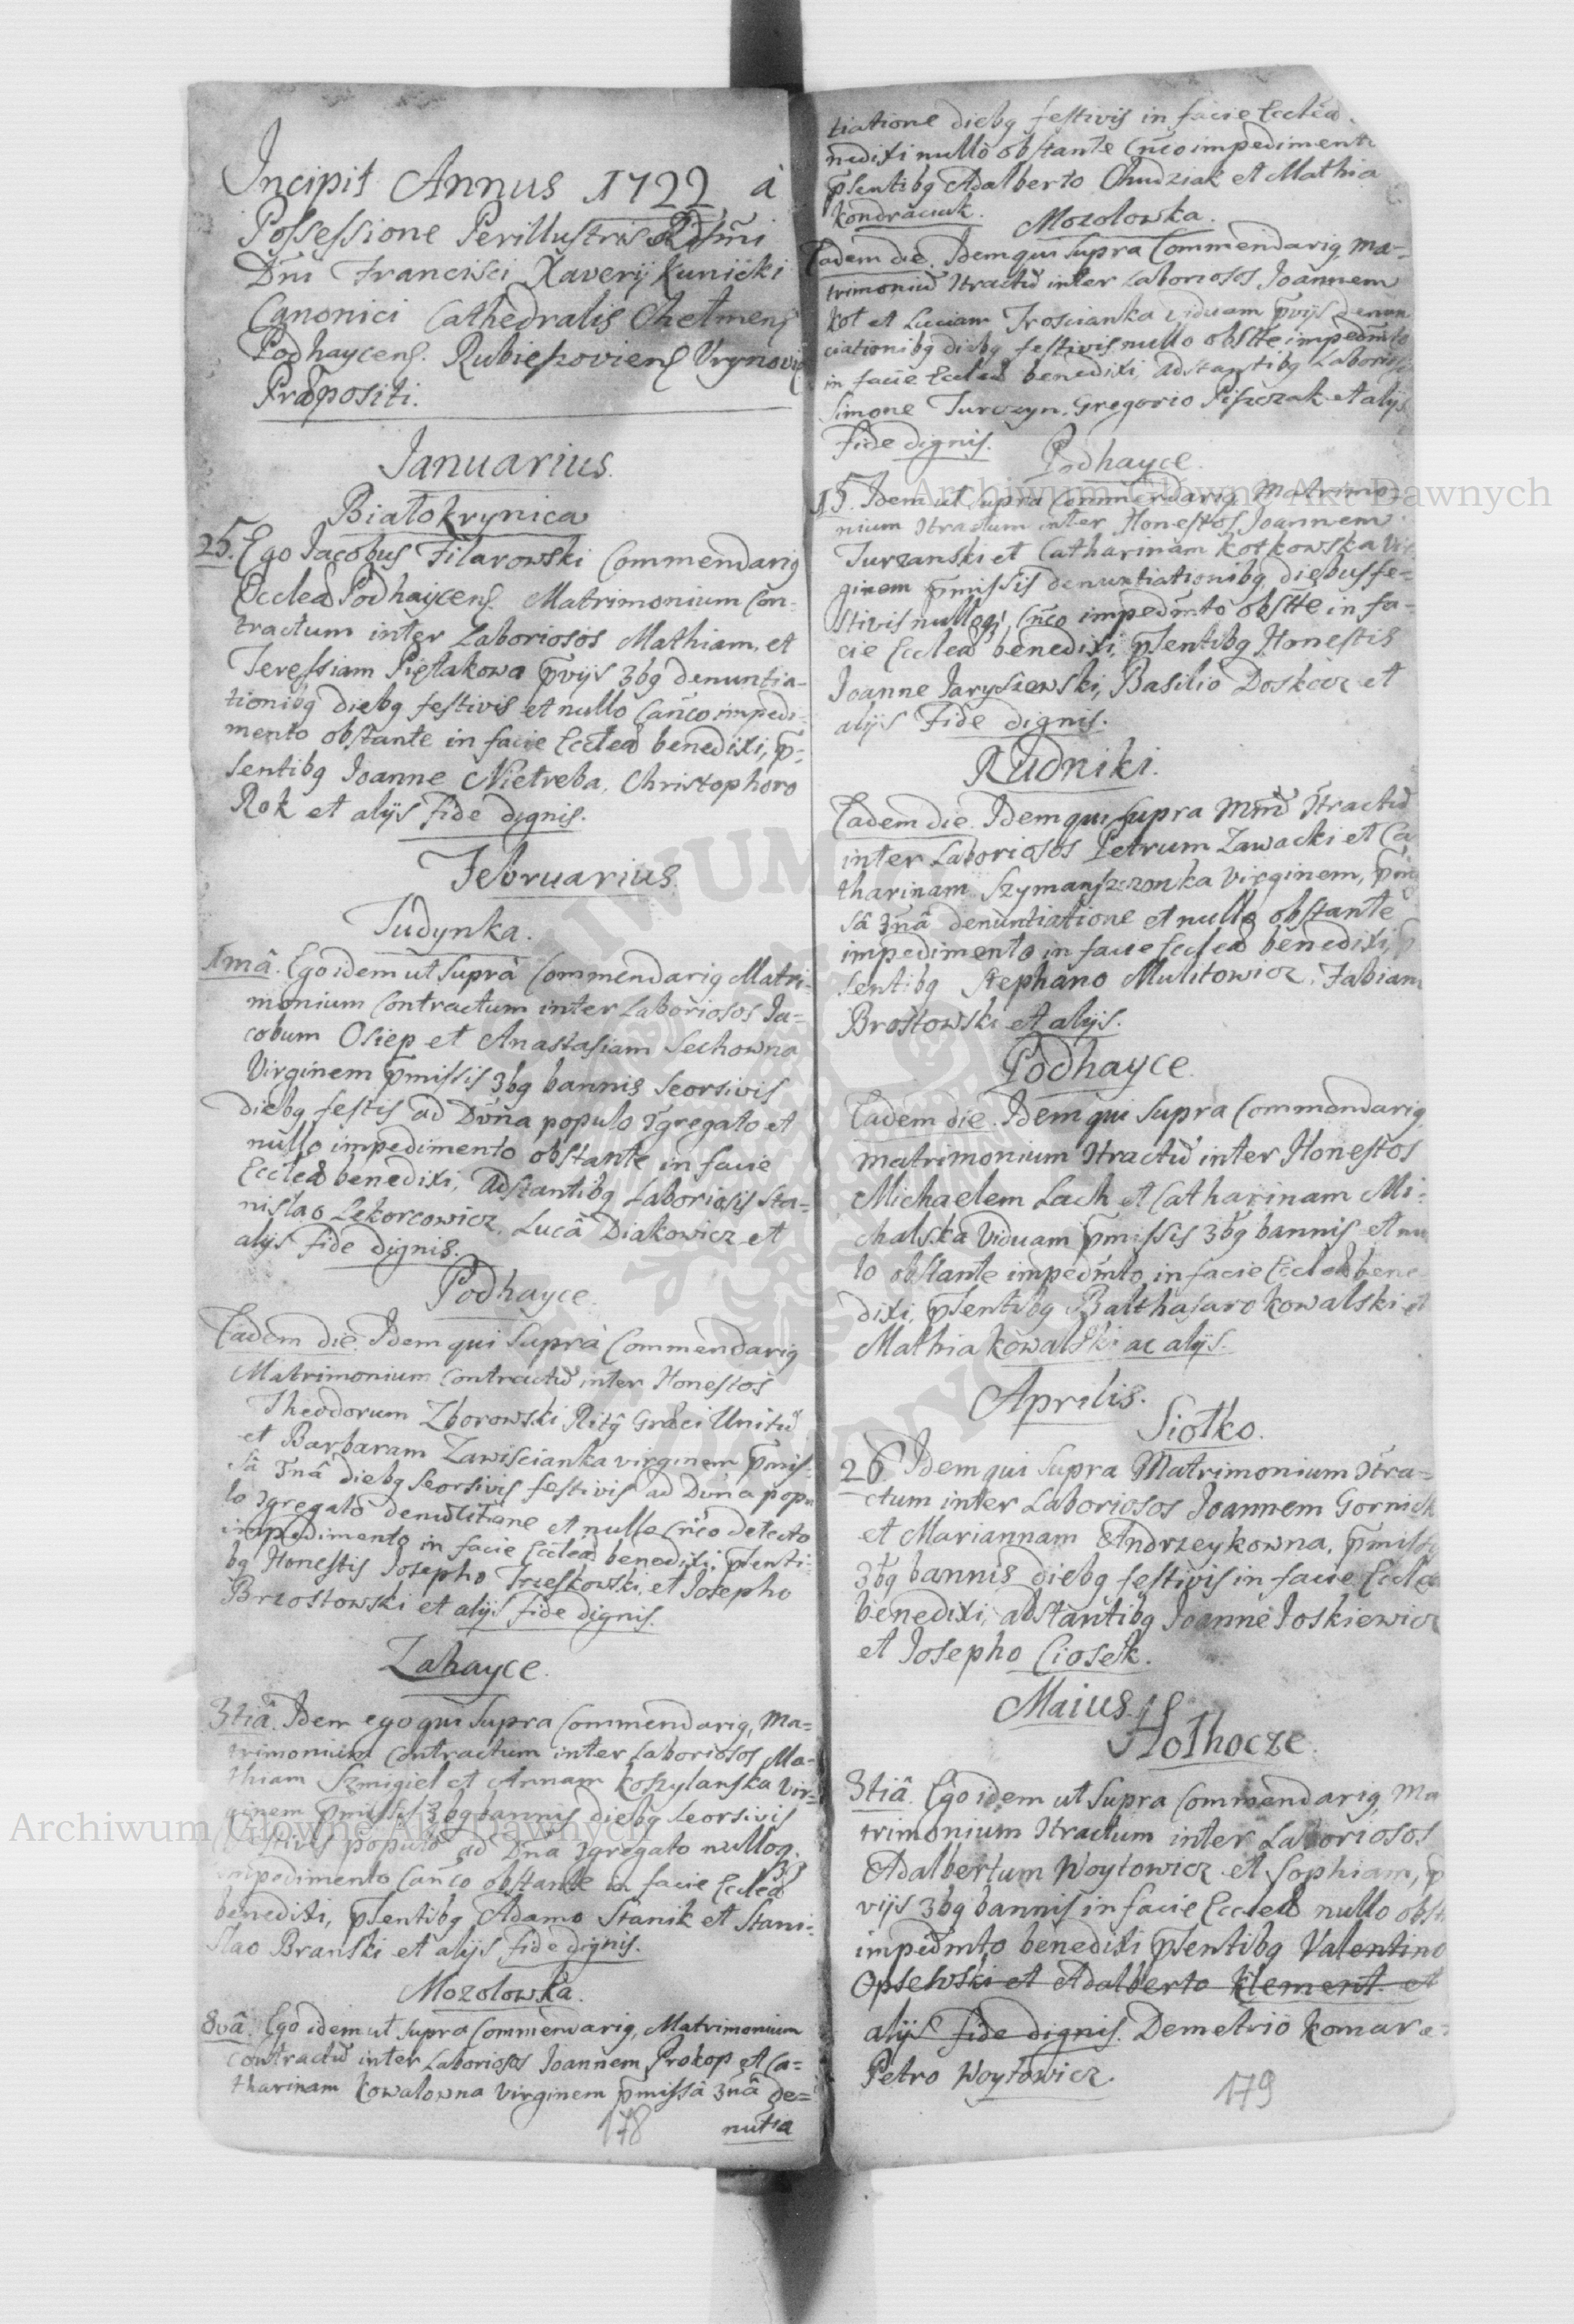 Incipit Annus 1722 à
Possessione Perillustris Rdsmi
Dni Francisci Xaverij Kunicki
Canonici Cathedralis Chełmens
Podhaycens. Rubieszoviens Vrynovi
Præpositi.
Ianuarius.
Białokrynica
25. Ego Jacobus Filarowski Commendarig
Eccleæ Podhaycens. Matrimonium Con-
tractum inter Laboriosos Mathiam, et
Teressiam Pięlakowa p̄vijs 3bg denuntia-
tionibg diebg festivis et nullo Canco impedi-
mento obstante in facie Eccleæ benedixi, p̄-
sentibg Joanne Nietreba, Christophoro
Rok et alijs fide dignis.
Februarius.
Judynka.
1mâ. Ego idem ut suprà Commendarig Matri-
monium Contractum inter Laboriosos Ja=
cobum Osiep et Anastasiam Sechowna
Virginem p̄missis 3bg bannis seorsivis
diebg festis ad Dvna populo Ɉgregato et
nullo impedimento obstante in facie
Eccleæ benedixi, Adstantibg Laboriosis Sta=
nislao Lekorcowicz, Lucâ Diakowicz et
alijs fide dignis.
Podhayce.
Eadem die. Idem qui suprà Commendarig
Matrimonium Contractū inter Honestos
Theodorum Zborowski Ritg Græci Unitū
et Barbaram Zawiscianka virginem p̄mis-
sâ 3nâ diebg seorsivis festivis ad Dvna popu
lo Ɉgregato denutiãone et nullo Cnco detecto
impedimento in facie Eccleæ benedixi, p̄senti-
bg Honestis Josepho Trzeskowski, et Josepho
Brzostowski et alijs fide dignis.
Zahayce.
3tiâ. Idem ego qui supra Commendarig, Ma=
trimonium Contractum inter Laboriosos Ma=
thiam Szmigiel et Annam Koszylanska Vir=
ginem p̄missis 3bg bannis diebg seorsivis
festivis populo ad Dna Ɉgregato nulloq
impedimento Canco obstante in facie Eccleæ
benedixi, p̄sentibg Adamo Stanik et Stani-
slao Branski et alijs fide dignis.
Mozolowka.
8vâ. Ego idem ut supra Commendarig, Matrimonium
Contractū inter Laboriosos Joannem Prokop et Ca=
tharinam Kowalowna Virginem p̄missâ 3nâ de=
nutia
178
tiatione diebg festivis in facie Eccleæ
nedixi nullo obstante Cnco impediment
p̄sentibg Adalberto Chudziak et Mathia
Kondraciuk.
Mozolowka.
Eadem die. Idem qui supra Commendarig, Ma-
trimoniū Ɉtractū inter Laboriosos Joannem
Kot et Luciam Troscianka viduam p̄vijs denun
ciationibg diebg festivis nullo obstte impedmto
in facie Eccleæ benedixi, Adstantibg Laborios
Simone Turczyn, Gregorio Piszczak et alijs
fide dignis.
Podhayce.
15. Idem ut supra Commendarig Matrimo-
nium Ɉtractum inter Honestos Joannem
Turzanski et Catharinam Kotkowska Vir
ginem p̄missis denuntiationibg, diebus fe-
stivis nulloqᷓ Cnco impedmto obstte in fa-
cie Eccleæ benedixi, p̄sentibg Honestis
Joanne Jaryszewski, Basilio Doskocz et
alijs Fide dignis.
Rudniki.
Eadem die. Idem qui supra Mmū Ɉtractū
inter Laboriosos Petrum Zawacki et Ca
tharinam Szymanszczonka Virginem, p̄mis
sâ 3nâ denuntiatione et nullo obstante
impedimento in facie Eccleæ benedixi, p̄
sentibg Stephano Mulitowicz, Fabiano
Brostowski et alijs.
Podhayce.
Eadem die. Idem qui supra Commendarig,
matrimonium Ɉtractū inter Honestos
Michaelem Lach et Catharinam Mi-
chalska Viduam p̄missis 3bg bannis et nu
lo obstante impedmto in facie Eccleæ bene
dixi, p̄sentibg Balthasaro Kowalski et
Mathia Kowalski ac alijs.
Aprilis.
Siołko.
26. Idem qui supra Matrimonium Ɉtra=
ctum inter Laboriosos Joannem Gornick
et Mariannam Andrzeykowna, p̄missis
3bg bannis diebg festivis in facie Eccleæ
benedixi, adstantibg Joanne Joskiewicz
et Josepho Ciosek.
Maius.
Hołhocze.
3tiâ. Ego idem ut supra Commendarig, Ma
trimonium Ɉtractum inter Laboriosos
Adalbertum Woytowicz et Sophiam, p̄
vijs 3bg bannis in facie Eccleæ nullo obst
impedmto benedixi p̄sentibg Valentino
Opselwski et Adalberto Klement. et
alijs fide dignis. Demetrio Komar e
Petro Woytowicz.
179
Archiwum Główne Akt Dawnych
Archiwum Główne Akt Dawnych